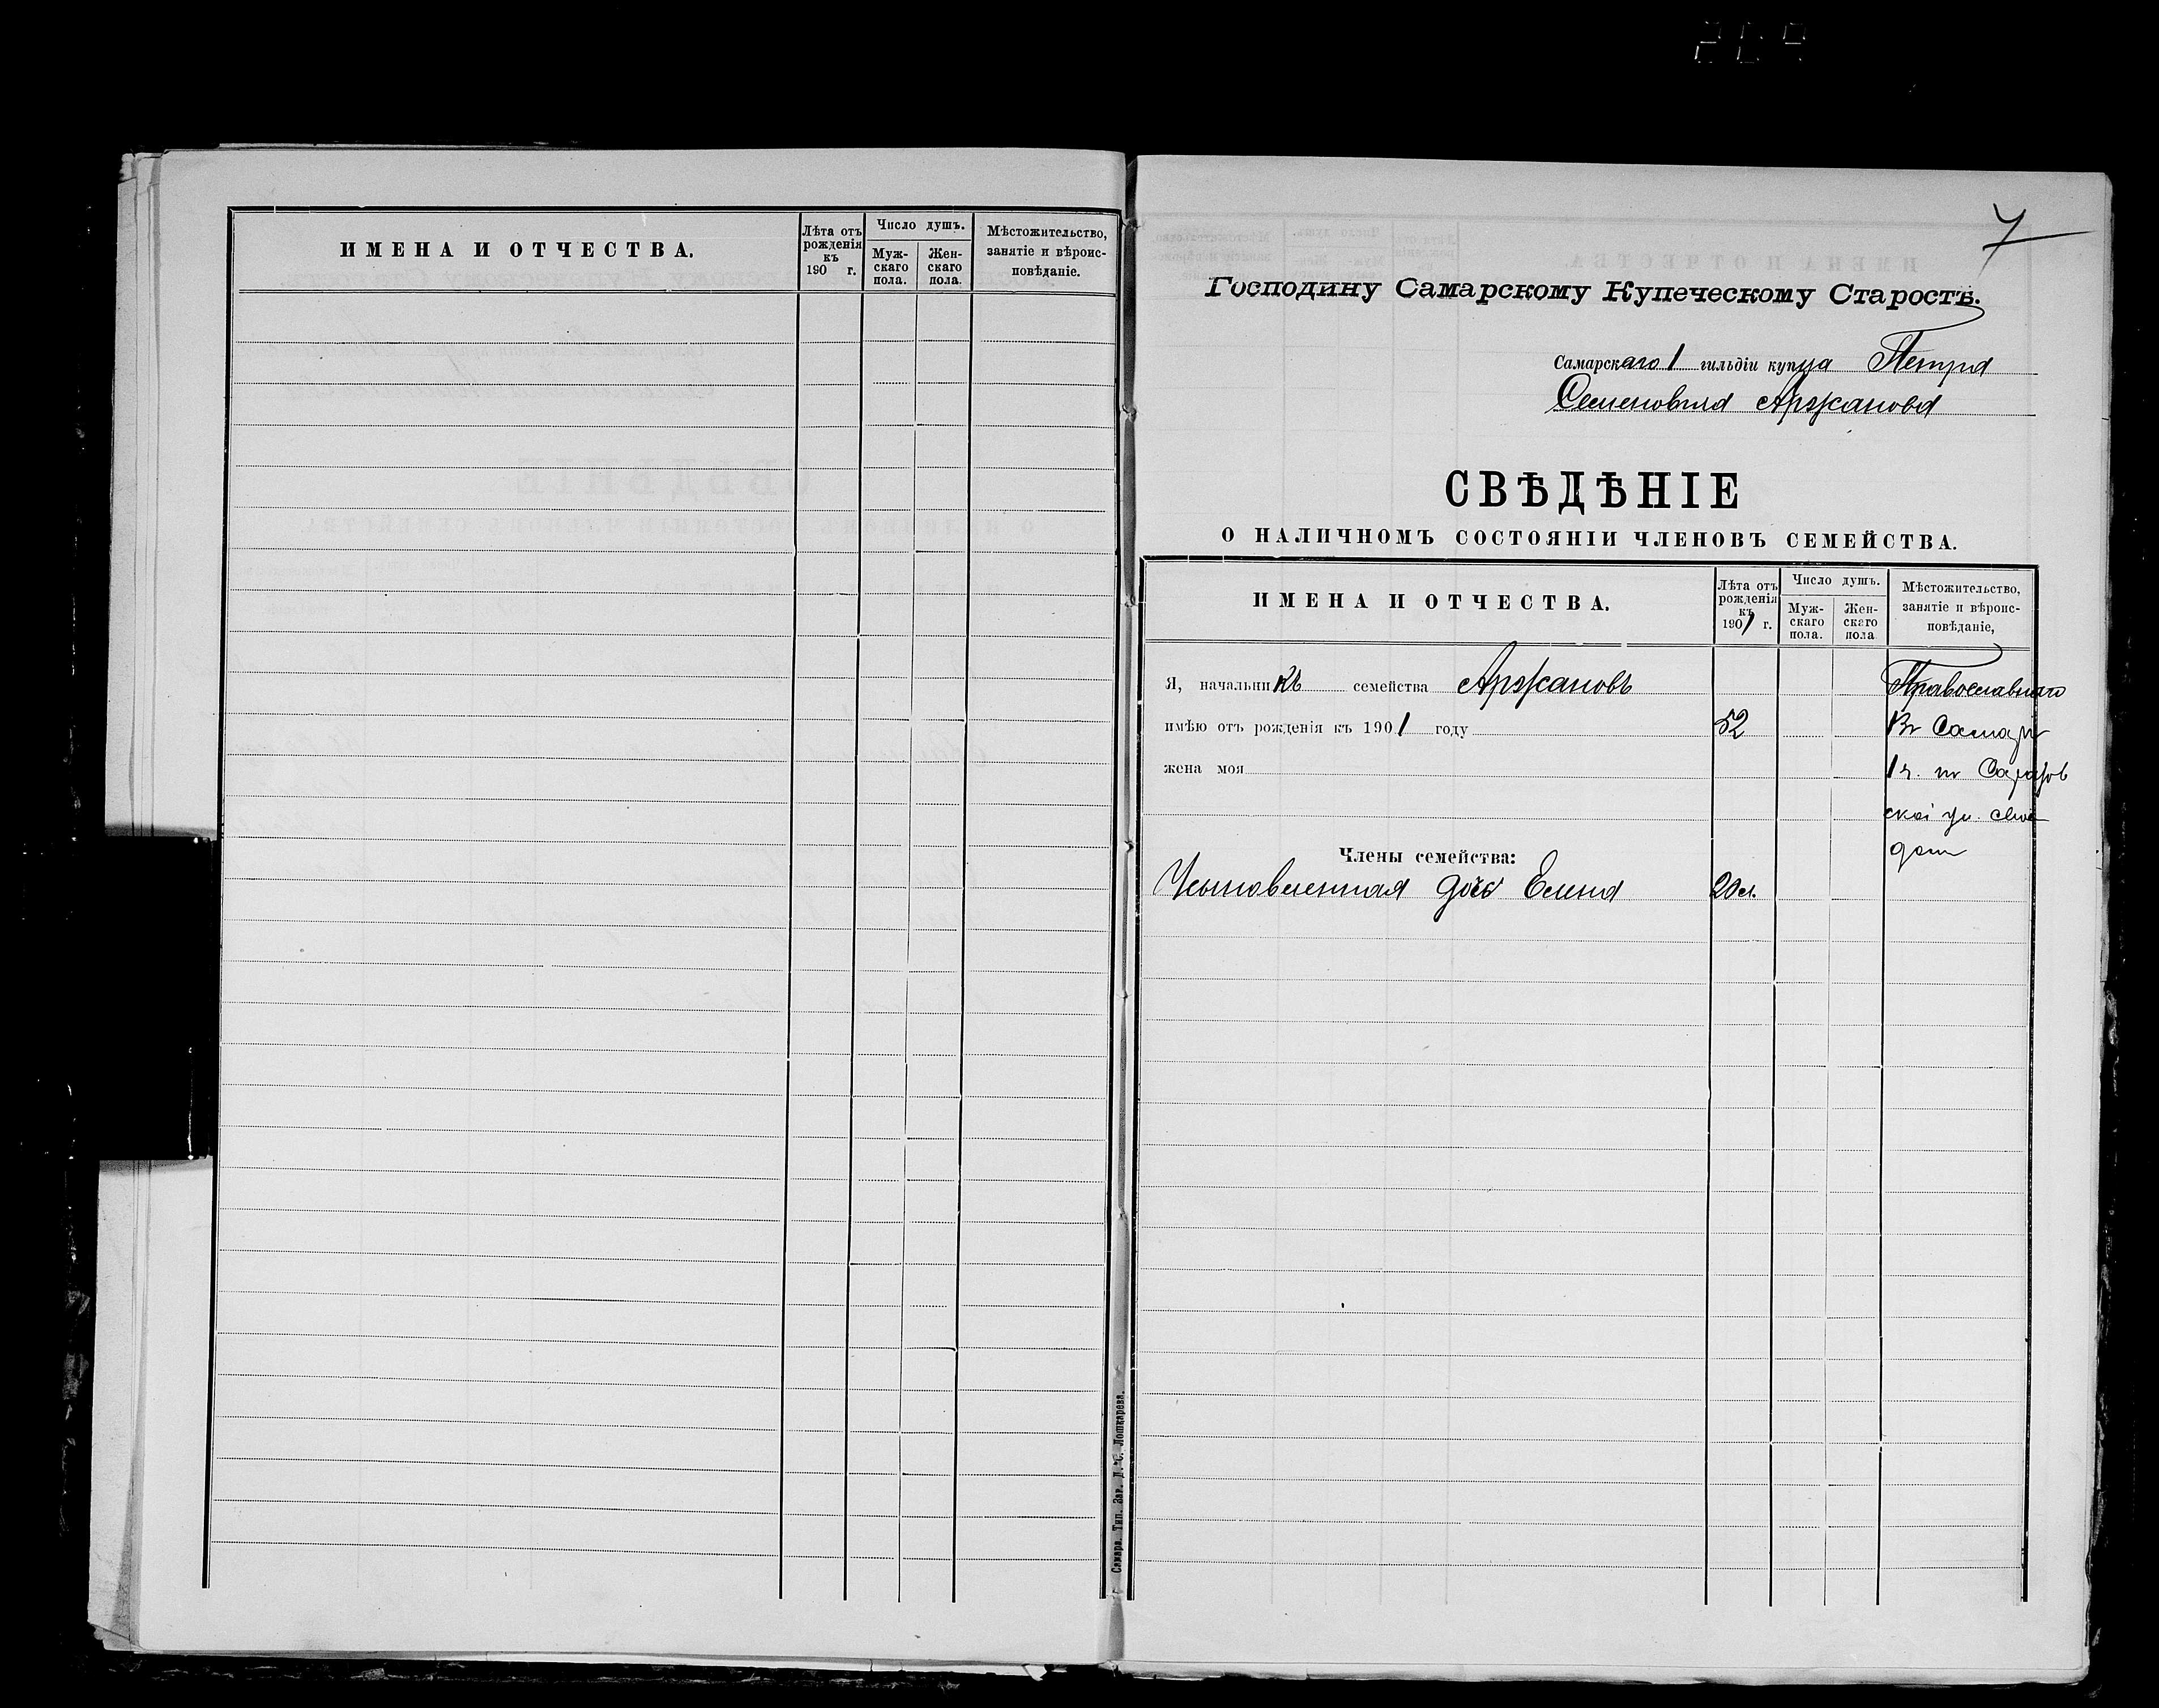 ИМЕНА И ОТЧЕСТВА.
Лѣта отъ рожденія къ 190 г.
Число душъ.
Мужскаго пола.
Женскаго пола.
Мѣстожительство, занятіе и вѣроисповѣданіе.
Самара. Тип. Зав. Д. С. Лошкарева.
7
Господину Самарскому Купеческому Старостѣ.
Самарскаго 1 гильдіи купца Петра
Семеновича Аржанова
СВѢДѢНІЕ
О НАЛИЧНОМЪ СОСТОЯНІИ ЧЛЕНОВЪ СЕМЕЙСТВА.
ИМЕНА И ОТЧЕСТВА.
Лѣта отъ рожденія къ 1901 г.
Число душъ.
Муж-скаго пола.
Жен-скаго пола
Мѣстожительство, занятіе и вѣроис-повѣданіе,
Я, начальникъ семейства Аржановъ Православнаго
имѣю отъ рожденія къ 1901 году 52 Въ Самарѣ
жена моя 1 ч. по
ской ул. свой
домъ
Члены семейства:
Усыновленная дочь Елена 20 л.